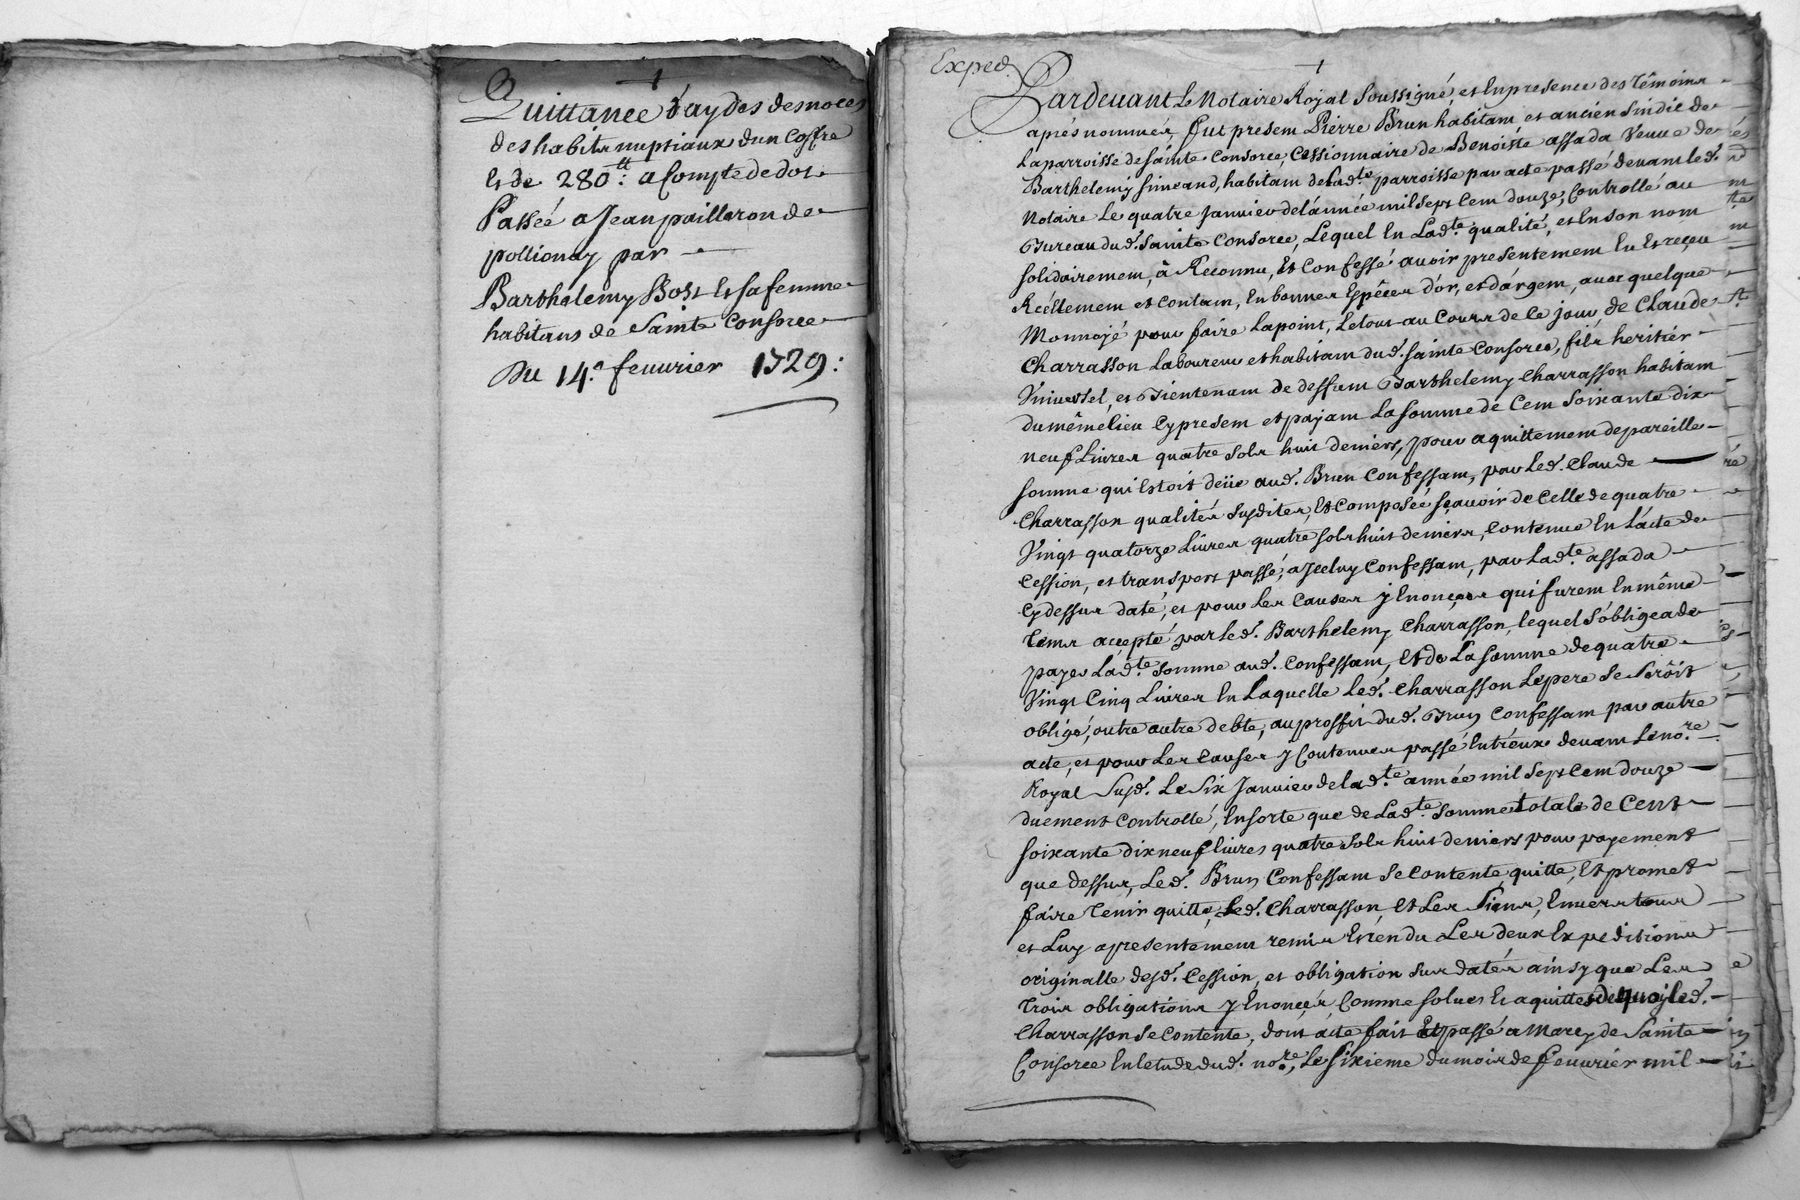 Quittance d'aydes de noces
des habits nuptiaux d'un coffre
et de 280ᵗᵗ: a Compte de dot
Passée a Jean paillaron de
pollionay par
Barthelemy Bost et sa femme
habitans de Sainte Consorce
Du 14.ᵉ feuurier 1729:
Exped.
Pardeuant Le Notaire Royal Soussigné, et En presence des témoins
aprés nommés, fut present Pierre Brun habitant et ancien Sindic de
La parroisse de Sainte Consorce, Cessionnaire de Benoiste assada Veuue de
Barthelemy simeand, habitant de Ladᵗᵉ parroisse par acte passé deuant led.
Notaire Le quatre Januier de l'année mil sept Cent douze, Controllé au
Bureau dud. Sainte Consorce, Lequel En Ladᵗᵉ qualité, et En son nom
solidairement, à Reconnu, Et Confessé auoir presentement Eu Et reçeu
Réellement et Contant, En bonnes Espêces d'or, et d'argent, auec quelque
Monnoyé pour faire Lapoint, Le tout au Cours de Ce jour, de Claude
Charrasson Laboureur et habitant dud. Sainte Consorce, fils heritier
Vniuersel, et Bientenant de deffunt Barthelemy Charrasson habitant
du même lieu Cy present et payant La somme de Cent Soixante dix
neuf Liures quatre sols huit deniers, pour aquittement de pareille
somme qui Estoit deüe aud. Brun Confessant, par Led. Claude
Charrasson qualités susdites, Et Composée sçauoir de Celle de quatre
Vingt quatorze Liures quatre sols huit deniers, Contenue En L'acte de
Cession, et transport passé, a Jceluy Confessant, par Ladᵗᵉ. assada
Cy dessus daté, et pour Les Causes y Enonçées qui furent En même
tems accepté par Led. Barthelemy Charrasson, lequel s'obligea de
payer Ladᵗᵉ somme aud. Confessant, Et de La somme de quatre
Vingt Cinq Liures En Laquelle Led. Charrasson Le pere Se Seroit
obligé, outre autre debte, au proffit dud. Brun Confessant par autre
acte, et pour Les Causes y Contenues passé Entreux deuant Le noʳᵉ
Royal Susd. Le Six Januier de ladᵗᵉ année mil Sept Cent douze
duement Controllé, En sorte que de Ladᵗᵉ. somme totale de Cent
soixante dix neuf liures quatre sols huit deniers pour payement
que dessus, Led. Brun Confessant Se Contente, quitte, Et promet
faire tenir quitte, Led. Charrasson, Et Les Siens, Enuers tous
et Luy a presentement remis Et rendu Les deux Expeditions
originalle desd. Cession, et obligation sus datés ainsy que Les
trois obligations y Enonçés, Comme solues Et aquittés de quoy Led.
Charrasson Se Contente, dont acte fait Et passé a Marcy de Sainte
Consorce En l'etude dud. noʳᵉ, Le Sixieme du mois de feuurier mil